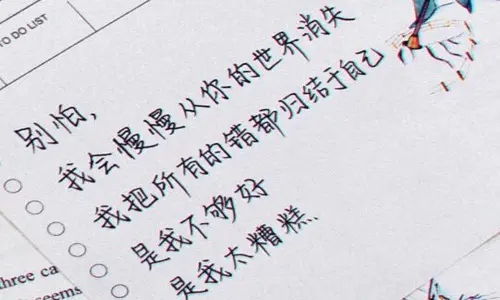 TO DO LIST
别怕，
我会慢慢从你的世界消失
我把所有的错都归结于自己
是我不够好
是我太糟糕..
three ca
seems